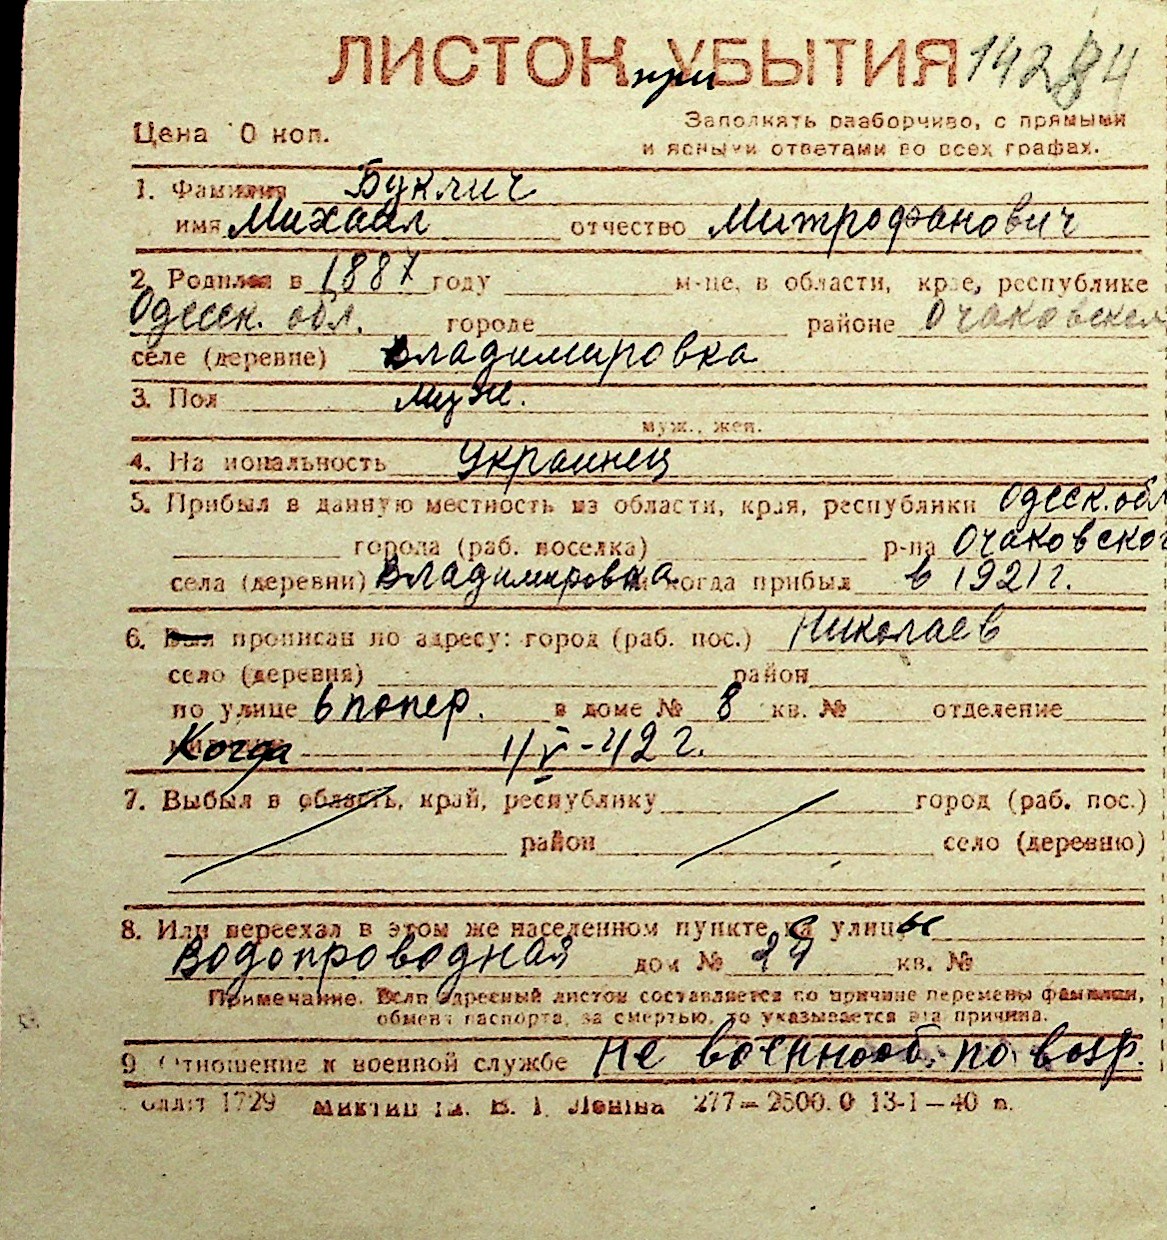 ЛИСТОК при УБЫТИЯ 14284
Цена 10 коп. Заполнять разборчиво, с прямыми
и ясными ответами во всех графах.
1. Фамилия Буклич
имя Михаил отчество Митрофанович
2. Родился в 1887 году м-це, в области, крае, республике
Одесск. обл. городе районе Очаковском
селе (деревне) Владимировка
3. Пол муж.
муж., жен.
4. Национальность Украинец
5. Прибыл в данную местность из области, края, республики Одесск. обл
города (раб. поселка) р-на Очаковског
села (деревни) Владимировка и когда прибыл в 1921 г.
6. Был прописан по адресу: город (раб. пос.) Николаев
село (деревня) район
по улице 6 попер. в доме № 8 кв. № отделение
Когда 1/V-42 г.
7. Выбыл в область, край, республику город (раб. пос.)
район село (деревню)
8. Или переехал в этом же населенном пункте с улицы
Водопроводная дом № 24 кв. №
Примечание. Если адресный листок составляется по причине перемены фамилии,
обмена паспорта, за смертью, то указывается эта причина.
9 Отношение к военной службе Не военнооб. по возр.
1729 277—2500.0 13-1—40 п.